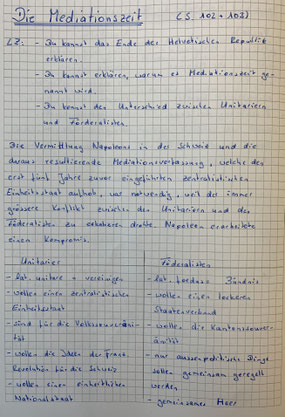 Die Mediationszeit (S. 102 + 103)
LZ: - Du kannst das Ende der Helvetischen Republik
erklären.
- Du kannst erklären, warum es Mediationszeit ge-
nannt wird.
- Du kennst den Unterschied zwischen Unitariern
und Föderalisten.
Die Vermittlung Napoleons in der Schweiz und die
daraus resultierende Mediationsverfassung, welche den
erst fünf Jahre zuvor eingeführten zentralistischen
Einheitsstaat aufhob, war notwendig, weil der immer
grössere Konflikt zwischen den Unitariern und den
Föderalisten zu eskalieren drohte. Napoleon erarbeitete
einen Kompromis.
Unitarier
- lat. unitare = vereinigen
- wollen einen zentralistischen
Einheitsstaat
- sind für die Volkssouveräni-
tät
- wollen die Ideen der Franz.
Revolution für die Schweiz
- wollen einen einheitlichen
Nationalstaat
Föderalisten
- lat. foedus = Bündnis
- wollen einen lockeren
Staatenverbund
- wollen die Kantonssouver-
änität
- nur aussenpolitische Dinge
sollen gemeinsam geregelt
werden
- gemeinsames Heer